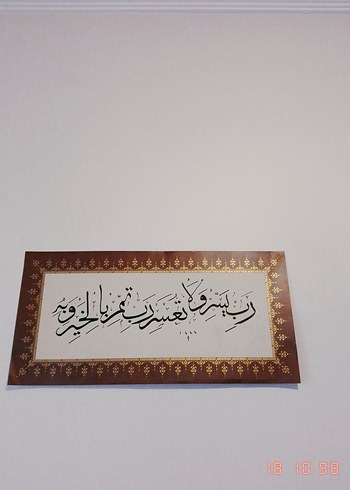 رَبِّ يَسِّرْ وَلَا تُعَسِّرْ رَبِّ تَمِّمْ بِالْخَيْرِ وَبِهِ
18 10 98